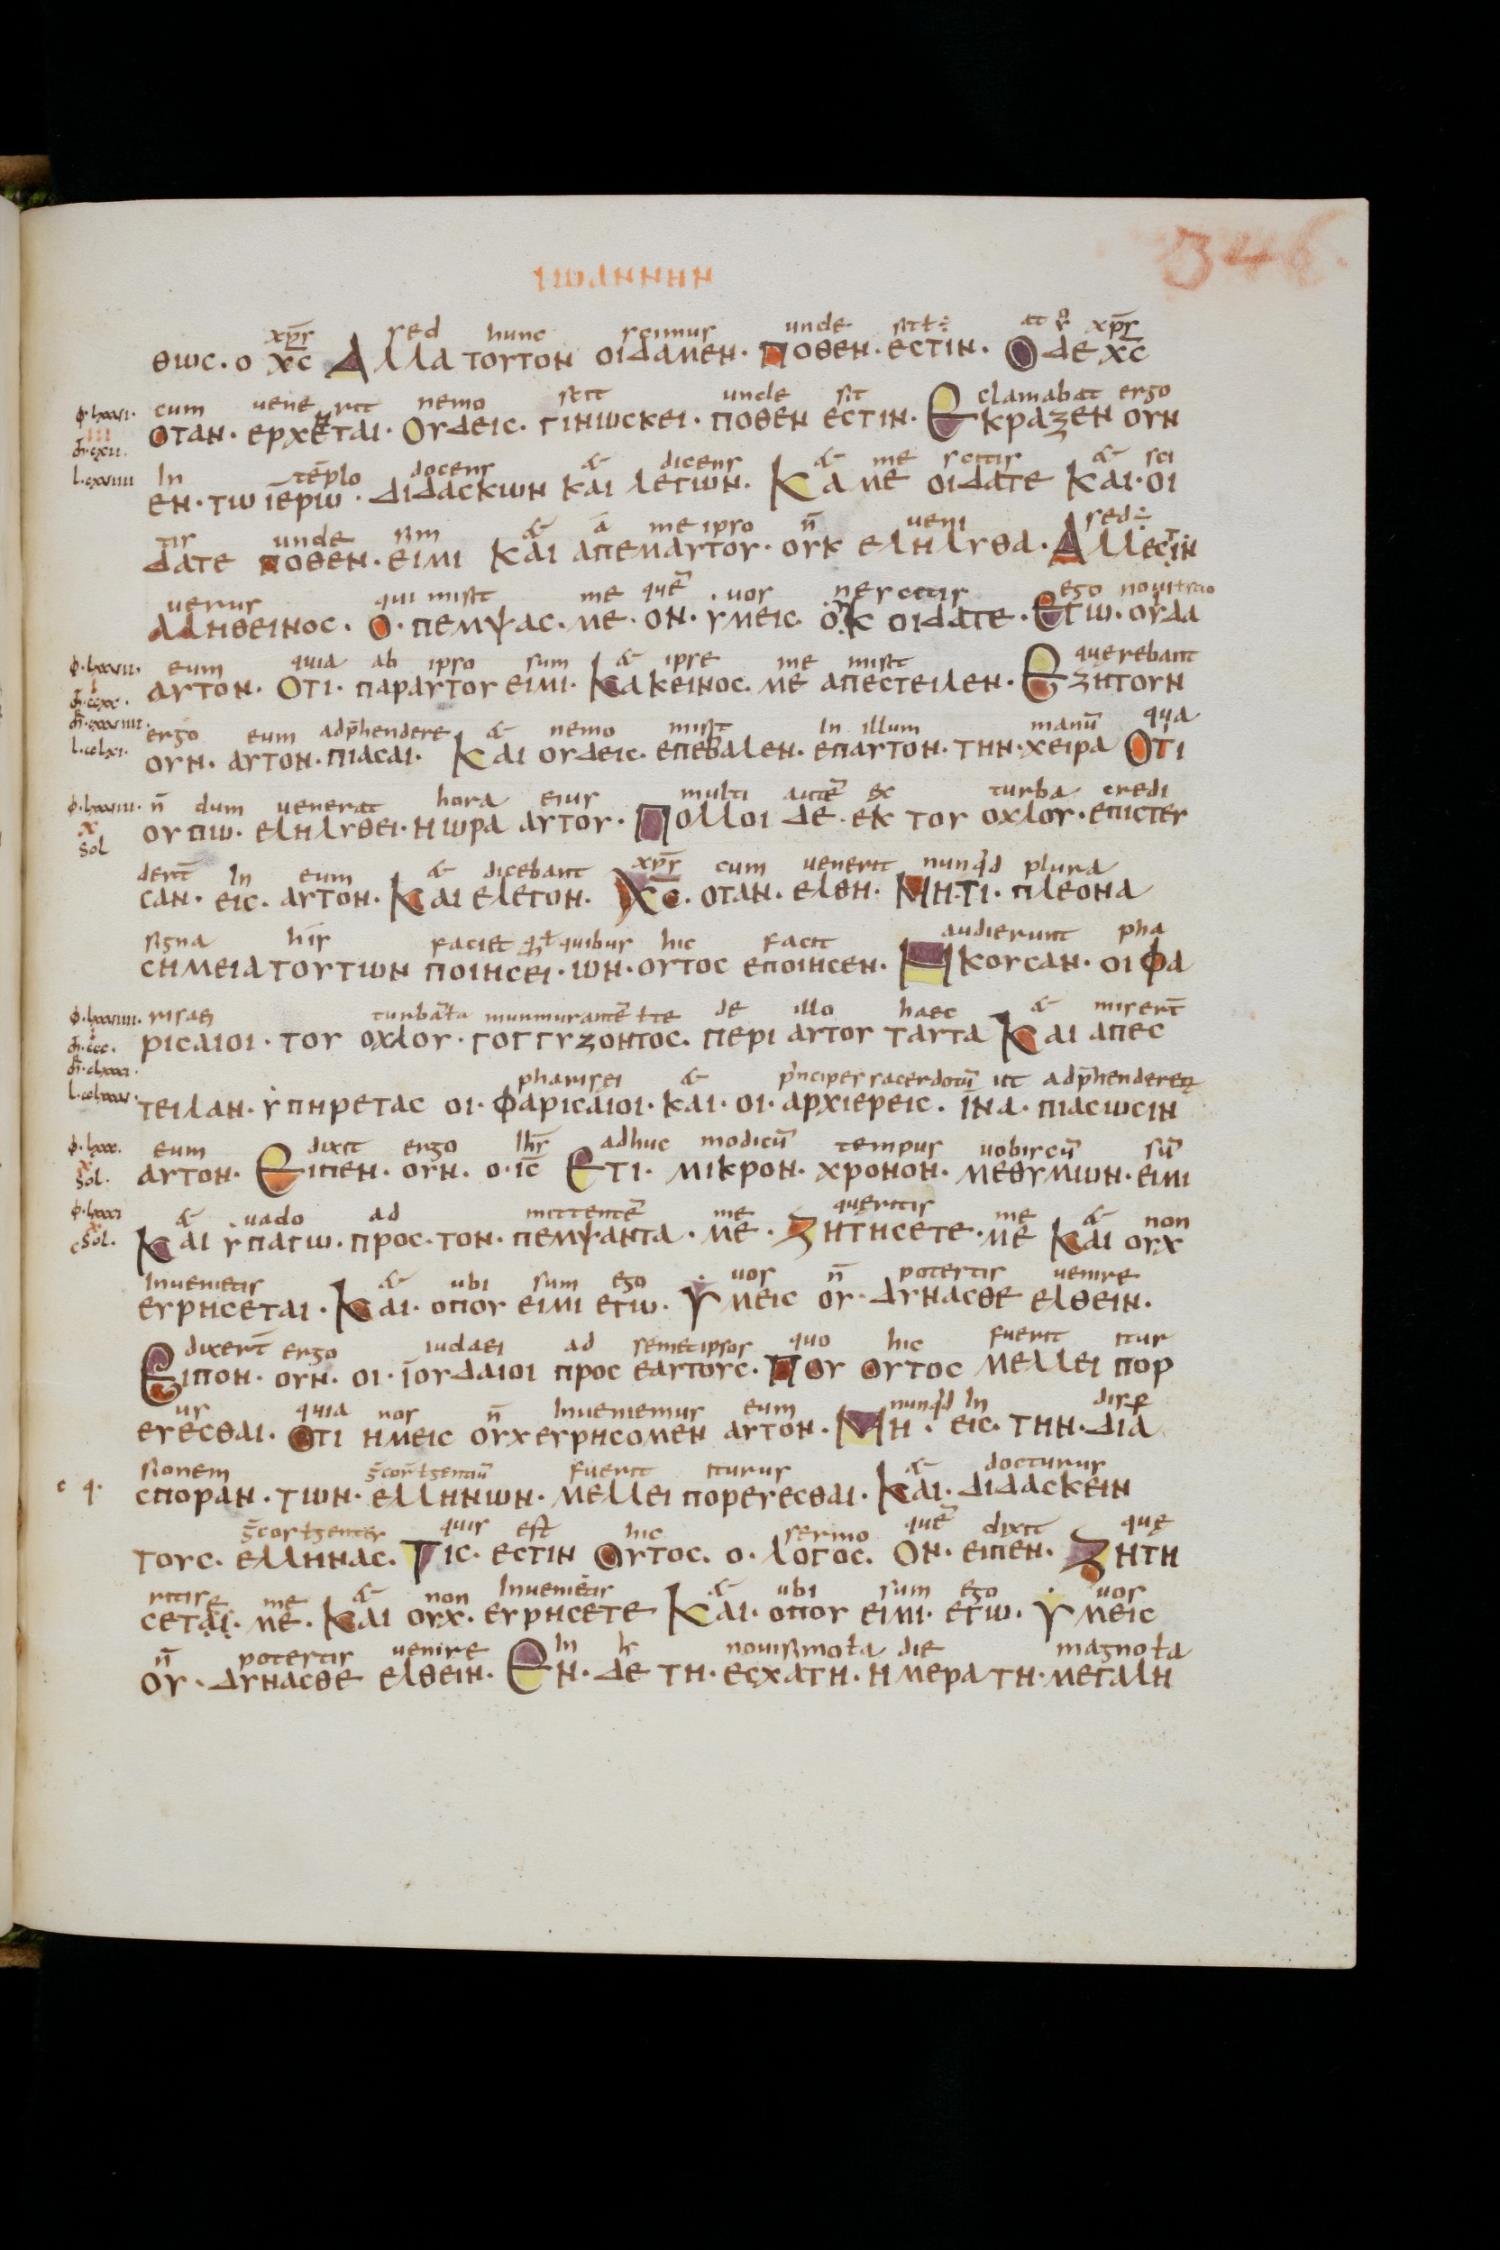 346.
ΙωΑΝΝΗΝ
xp̅s sed hunc scimus unde sit ł÷ at xp̅s
θωc. ο χ̅c̅ Αλλα τουτον οιδαμεν. Ποθεν. εcτιν. Ο δε χ̅c̅
cum uene rit nemo scit unde sit clamabat ergo
οταν. ερχεται. Ουδεις. γινωcκει. ποθεν εcτιν. Εκραζεν ουν
In te̅plo docens & dicens & me scitis & sci
εν. τω ιερω. διδαcκων και λεγων. Καμε οιδατε Και. οι
tis unde sum & a me ipso n̅ ueni sed÷
δατε ποθεν. ειμι Και απεμαυτου. ουκ εληλυθα. Αλλεcτιν
uerus qui misit me que̅ uos nescitis ego noui
αληθεινοc. Ο. πεμψαc. με. ον. υμειc. ουκ οιδατε. Εγω. ουδα
eum quia ab ipso sum & ipse me misit querebant
αυτον. Οτι. παραυτου ειμι. Κακεινοc. με απεcτειλεν. Εζητουν
ergo eum adp̅hendere & nemo misit In illum manu̅ quia
ουν. αυτον. πιαcαι. Και ουδειc. επεβαλεν. επαυτον. την. χειρα Οτι
n̅ dum uenerat hora eius multi aute̅ ex turba credi
ουπω. εληλυθει. η ωρα αυτου. Πολλοι δε. εκ του οχλου. επιcτευ
dert̅ In eum & dicebant xp̅s cum uenerit nunqd plura
cαν. ειc. αυτον. Και ελεγον. Χ̅c̅. οταν. ελθη. Μητι. πλεονα
signa his faciet quibus hic facit audierunt pha
cημεια τουτων ποιηcει. ων. ουτοc εποιηcεν. Ηκουcαν. οι φα
risaei turba̅ murmurante̅ de illo haec & misert̅
ριcαιοι. του οχλου. γογγυζοντοc. περι αυτου ταυτα Και απεc
pharisei & p̅ncipes sacerdotu̅ ut adp̅henderet
τειλαν. υπηρεταc οι. φαριcαιοι. και. οι. αρχιερειc. ινα. πιαcωcιν
eum dixit ergo ih̅s adhuc modicu̅ tempus uobiscu̅ su̅
αυτον. Ειπεν. ουν. ο. ι̅c̅ Ετι. μικρον. χρονον. μεθυμων. ειμι
& uado ad mittente̅ me queritis me & non
Και υπαγω. προc. τον. πεμψαντα. με. Ζητηcετε. με Και ουχ
Inuenietis & ubi sum ego uos n̅ potestis uenire
ευρηcεται. Και. οπου ειμι εγω. Υμειc ου. δυναcθε ελθειν.
dixert̅ ergo iudaei ad semetipsos quo hic fuerit itur
Ειπον. ουν. οι. ιουδαιοι προc εαυτουc. Που ουτοc μελλει πορ
us quia nos n̅ Inueniemus eum nunqd In disp
ευεcθαι. Οτι ημειc ουχ ευρηcομεν αυτον. Μη. ειc. την. δια
sionem fuerit iturus & docturus
cποραν. των. ελληνων. μελλει πορευεcθαι. Και. διδαcκειν
quis est hic sermo que̅ dixit que
τουc. ελληναc. Τιc. εcτιν Ουτοc. ο. λογοc. Ον. ειπεν. Ζητη
ritis me & non Inuenietis & ubi sum ego uos
cεται. με. Και ουχ. ευρηcετε Και. οπου ειμι. εγω. Υμειc
n̅ potestis uenire In nouissimo ła die magno ła
ου. δυναcθε ελθειν. Εν. δε τη. εcχατη. ημερα τη. μεγαλη